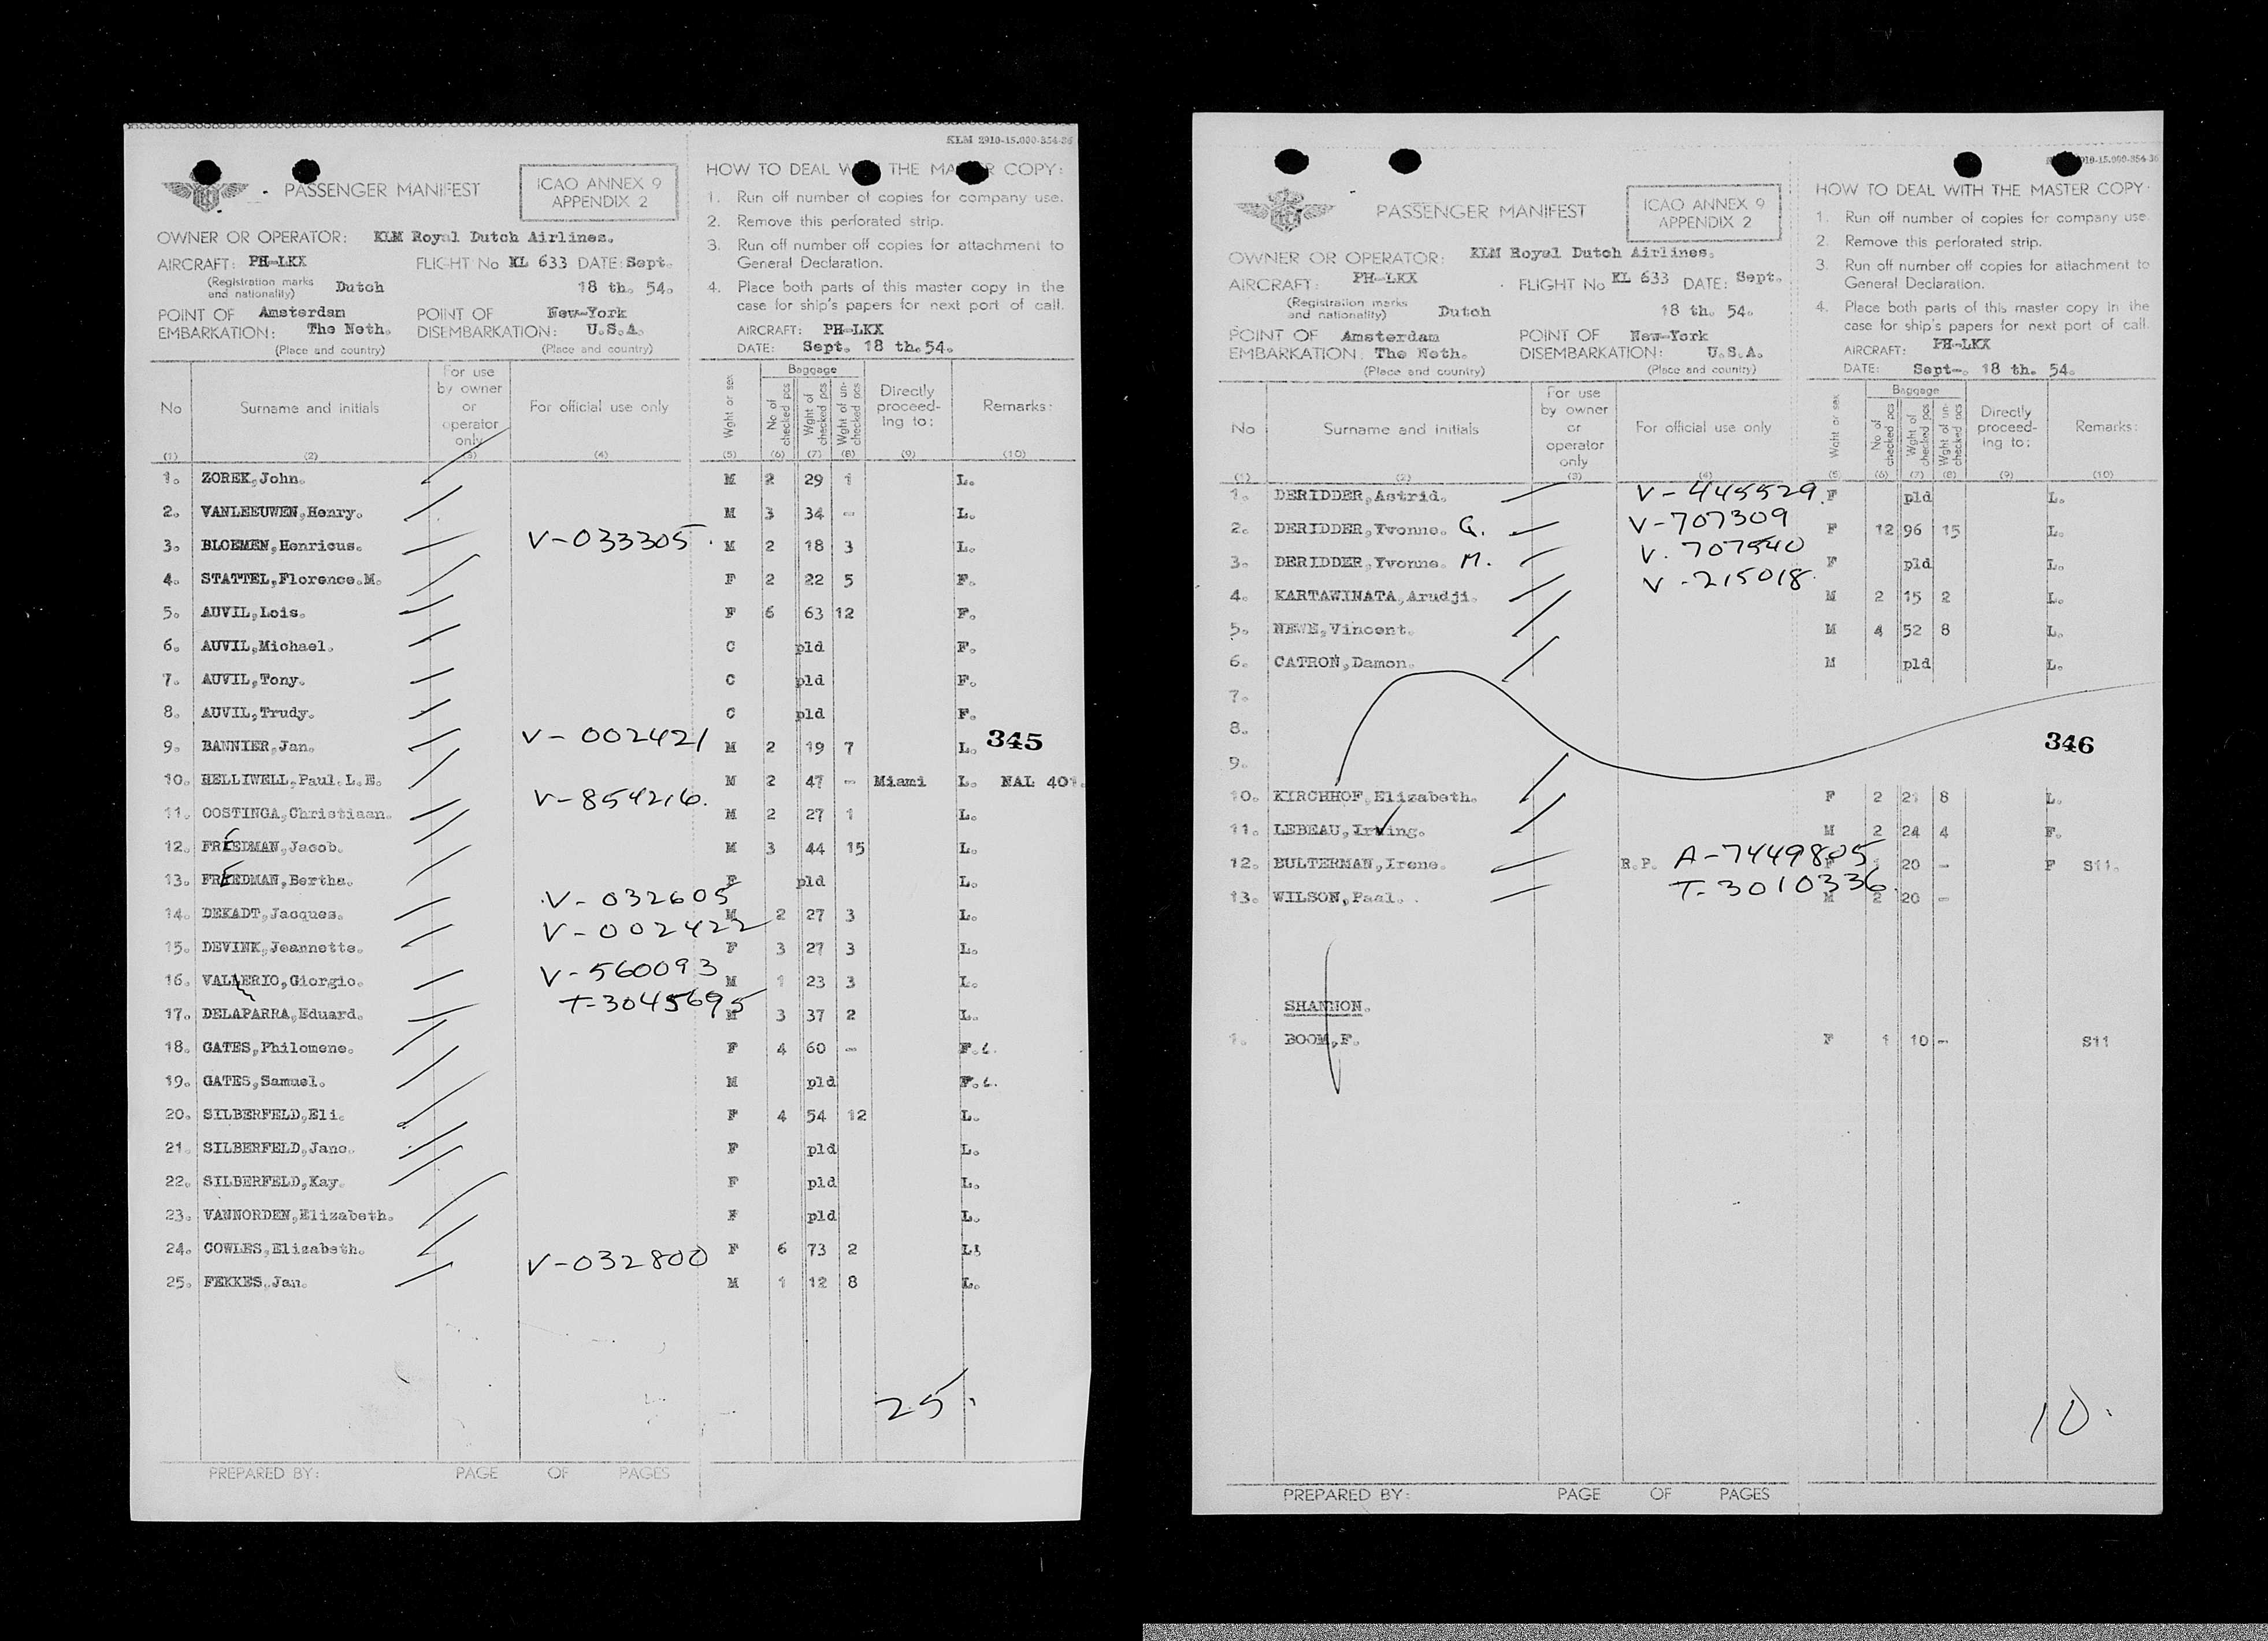 KLM 2910-15.000-354-36
PASSENGER MANIFEST
ICAO ANNEX 9
APPENDIX 2
OWNER OR OPERATOR: KLM Royal Dutch Airlines.
AIRCRAFT: PH-LKX FLIGHT No KL 633 DATE: Sept.
(Registration marks and nationality) Dutch 18 th. 54.
POINT OF EMBARKATION: Amsterdam The Neth. POINT OF DISEMBARKATION: New-York U.S.A.
(Place and country) (Place and country)
HOW TO DEAL WITH THE MASTER COPY:
1. Run off number of copies for company use.
2. Remove this perforated strip.
3. Run off number off copies for attachment to
General Declaration.
4. Place both parts of this master copy in the
case for ship's papers for next port of call.
AIRCRAFT: PH-LKX
DATE: Sept. 18 th. 54.
No Surname and initials For use by owner or operator only For official use only Wght or sex Baggage No of checked pcs Wght of checked pcs Wght of un-checked pcs Directly proceed-ing to: Remarks:
(1) (2) (3) (4) (5) (6) (7) (8) (9) (10)
1. ZOREK,John. M 2 29 1 L.
2. VANLEEUWEN,Henry. M 3 34 - L.
3. BLOEMEN,Henricus. V-033305. M 2 18 3 L.
4. STATTEL,Florence.M. F 2 22 5 F.
5. AUVIL,Lois. F 6 63 12 F.
6. AUVIL,Michael. C pld F.
7. AUVIL,Tony. C pld F.
8. AUVIL,Trudy. C pld F.
9. BANNIER,Jan. V-002421 M 2 19 7 L. 345
10. HELLIWELL,Paul.L.E. M 2 47 - Miami L. NAL 401.
11. OOSTINGA,Christiaan. V-854216. M 2 27 1 L.
12. FRIEDMAN,Jacob. E M 3 44 15 L.
13. FRIEDMAN,Bertha. E F pld L.
14. DEKADT,Jacques. V-032605 M 2 27 3 L.
15. DEVINK,Jeannette. V-002422 F 3 27 3 L.
16. VALLERIO,Giorgio. V-560093 M 1 23 3 L.
17. DELAPARRA,Eduard. T-3045695 M 3 37 2 L.
18. GATES,Philomene. F 4 60 - F.L.
19. GATES,Samuel. M pld F.L.
20. SILBERFELD,Eli. F 4 54 12 L.
21. SILBERFELD,Jane. F pld L.
22. SILBERFELD,Kay. F pld L.
23. VANNORDEN,Elizabeth. F pld L.
24. COWLES,Elizabeth. F 6 73 2 L.
25. FEKKES,Jan. V-032800 M 1 12 8 L.
25.
PREPARED BY: PAGE OF PAGES
910-15.000-354-36
PASSENGER MANIFEST
ICAO ANNEX 9
APPENDIX 2
OWNER OR OPERATOR: KLM Royal Dutch Airlines.
AIRCRAFT: PH-LKX FLIGHT No KL 633 DATE: Sept.
(Registration marks and nationality) Dutch 18 th. 54.
POINT OF EMBARKATION: Amsterdam The Neth. POINT OF DISEMBARKATION: New-York U.S.A.
(Place and country) (Place and country)
HOW TO DEAL WITH THE MASTER COPY:
1. Run off number of copies for company use.
2. Remove this perforated strip.
3. Run off number off copies for attachment to
General Declaration.
4. Place both parts of this master copy in the
case for ship's papers for next port of call.
AIRCRAFT: PH-LKX
DATE: Sept-. 18 th. 54.
No Surname and initials For use by owner or operator only For official use only Wght or sex Baggage No of checked pcs Wght of checked pcs Wght of un-checked pcs Directly proceed-ing to: Remarks:
(1) (2) (3) (4) (5) (6) (7) (8) (9) (10)
1. DERIDDER,Astrid. V-445529. F pld L.
2. DERIDDER,Yvonne. G. V-707309 F 12 96 15 L.
3. DERIDDER,Yvonne. M. V. 707540 F pld L.
4. KARTAWINATA,Arudji. V-215018. M 2 15 2 L.
5. NEWE,Vincent. M 4 52 8 L.
6. CATRON,Damon. M pld L.
7.
8. 346
9.
10. KIRCHHOF,Elizabeth. F 2 21 8 L.
11. LEBEAU,Irving. M 2 24 4 F.
12. BULTERMAN,Irene. R.P. A-7449805 F 1 20 - F S11.
13. WILSON,Paal. T-3010336. M 2 20 -
SHANNON.
1. BOOM,F. F 1 10 - S11
10.
PREPARED BY: PAGE OF PAGES